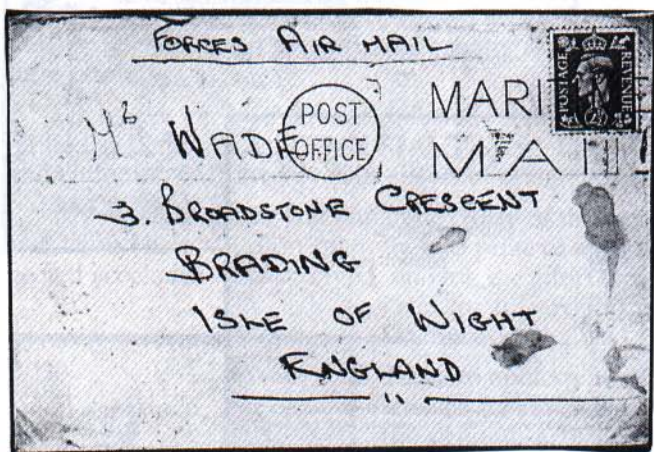 FORCES AIR MAIL
POSTAGE REVENUE
2½
POST OFFICE
MARI
MAIL
WADE
3. BROADSTONE CRESCENT
BRADING
ISLE OF WIGHT
ENGLAND